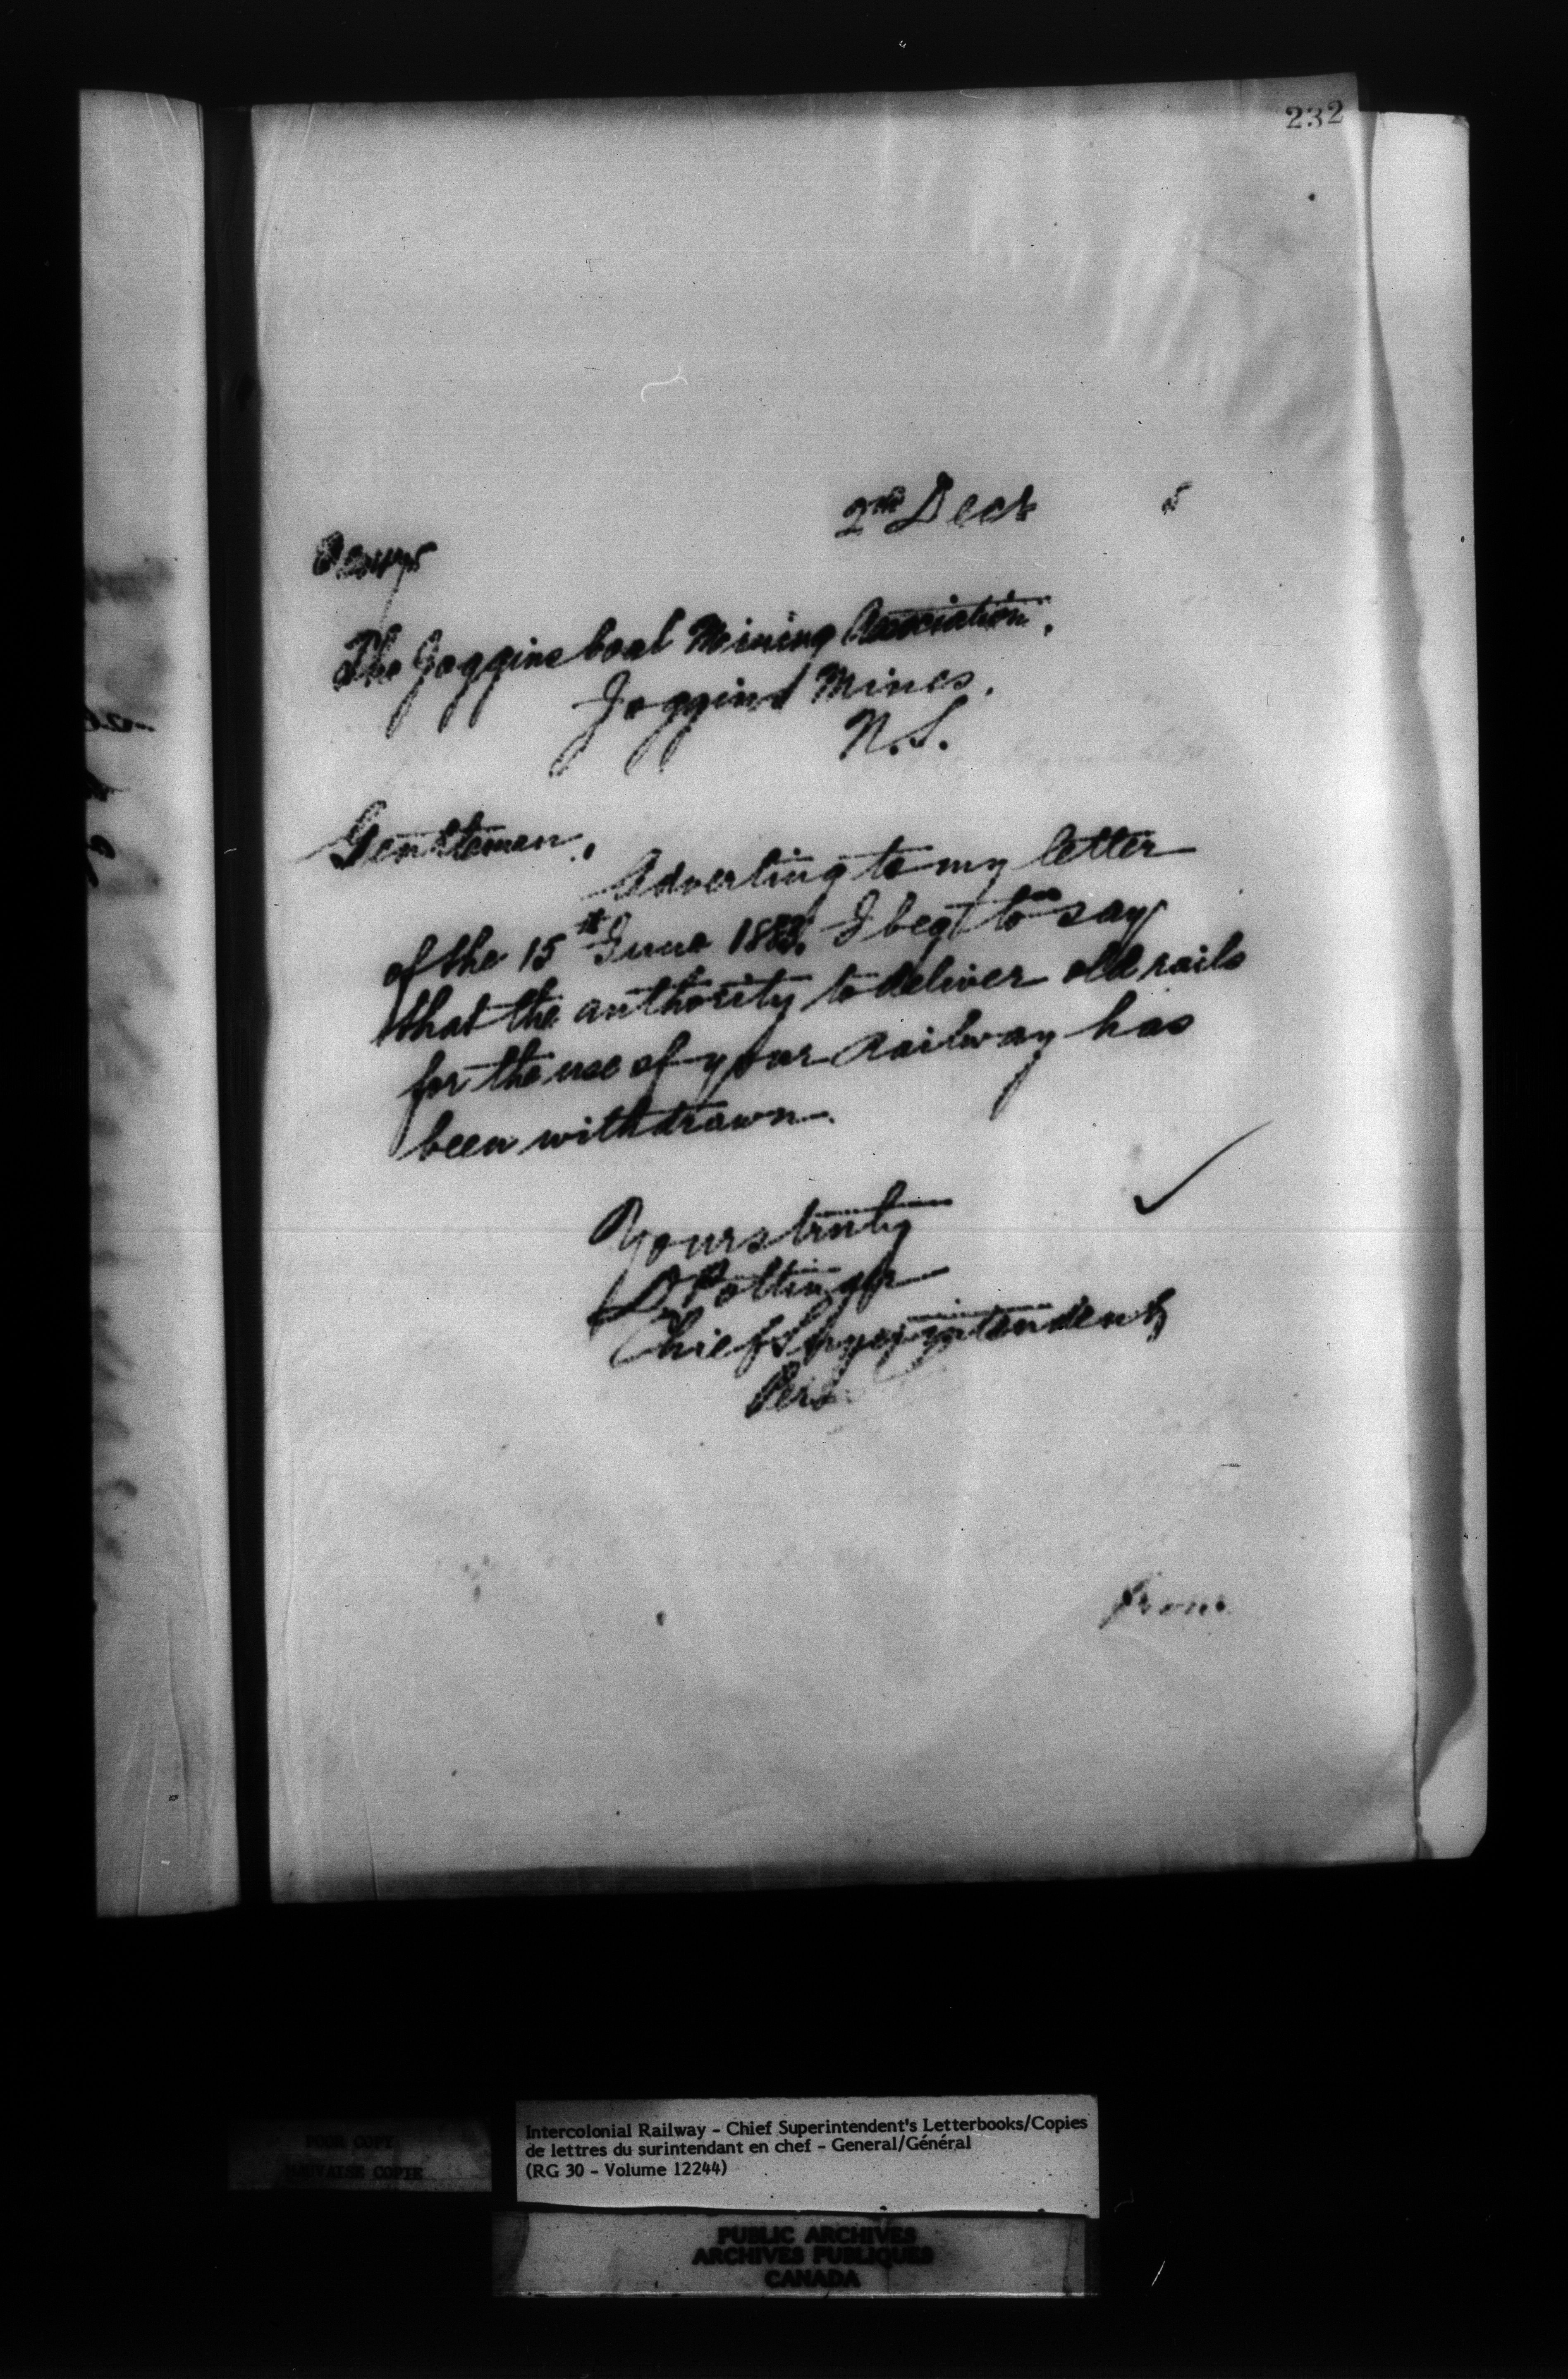 232
2nd Decr 5
The Joggins Coal Mining Association,
Joggins Mines.
N.S.
Gentlemen,
Adverting to my letter
of the 15th June 1883. I beg to say
that the authority to deliver old rails
for the use of your Railway has
been withdrawn.
Yours truly
D Pottinger
Chief Superintendent
Per
POOR COPY
MAUVAISE COPIE
Intercolonial Railway - Chief Superintendent's Letterbooks/Copies
de lettres du surintendant en chef - General/Général
(RG 30 - Volume 12244)
PUBLIC ARCHIVES
ARCHIVES PUBLIQUES
CANADA